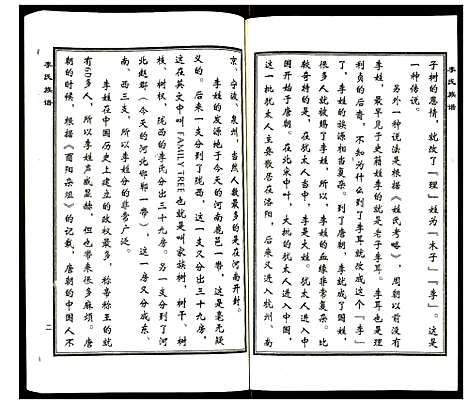 李氏族谱
子树的恩情，就改了「理」姓为「木子」「李」。这是
一种传说。
另外一种说法是根据《姓氏考略》，周朝以前没有
李姓，最早见于史籍姓李的就是老子李耳。李耳也是理
利贞的后裔，不知为什么到了李耳就改成这个「李」
了，李姓的族源相当复杂。到了唐朝，李就成了国姓，
很多人就被赐了李姓，所以，李姓的血缘非常复杂。比
较奇特的是，就连犹太人当中，李是大姓。犹太人进入中
国开始于唐朝。在北宋中叶，大批的犹太人进入中国，
这一批犹太人主要聚居在洛阳，后来又进入杭州、南
京、宁波、泉州，当然人数最多的是在河南开封。
李姓的发源地于今天的河南鹿邑一带，这是毫无疑
义的。后来一支分到了陇西，这一支又分出三十九房，
这在英文中叫FAMILY TREE也就是叫家族树，树干、树
枝、树权，陇西的李氏分出三十九房。另一支分到了河
北赵郡（今天的河北邯郸一带），这一房又分成东、
南、西三支，所以李姓分的非常广泛。
李姓在中国历史上建立的政权最多，称帝称王的就
有60多人，所以李姓声威显赫，但也带来很多麻烦。唐
朝的时候，根据《酉阳杂俎》的记载，唐朝的中国人不
李氏族谱
二